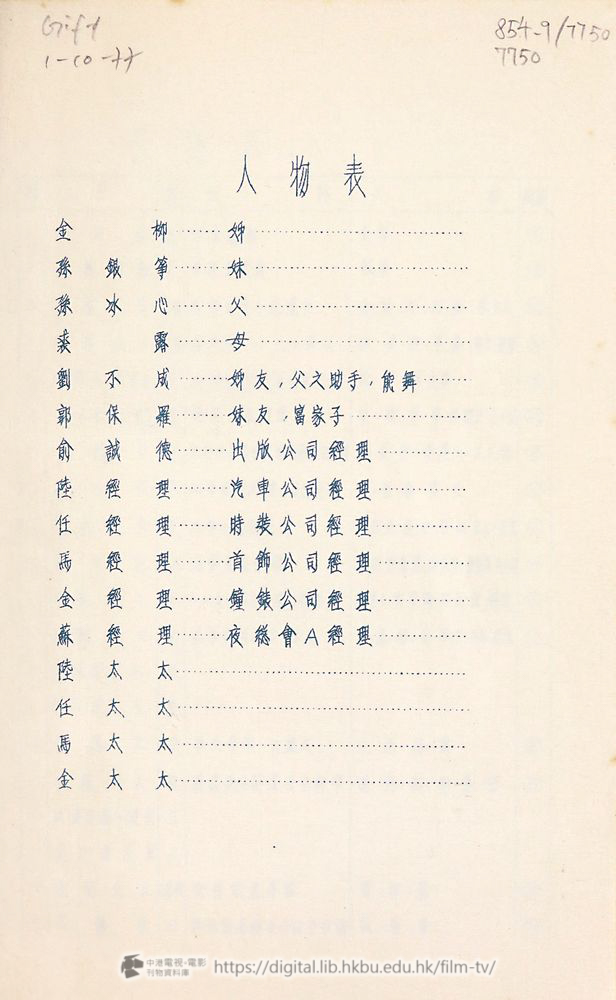 Gift
1-10-77
854.9/7750
7750
人物表
金柳……姊……
孫銀箏……妹……
孫冰心……父……
裘露……母……
劉不成……姊友，父之助手，能舞……
郭保羅……妹友，富家子……
俞誠德……出版公司經理……
陸經理……汽車公司經理……
任經理……時裝公司經理……
馬經理……首飾公司經理……
金經理……鐘錶公司經理……
蘇經理……夜總會A經理……
陸太太……
任太太……
馬太太……
金太太……
中港電視·電影
刊物資料庫
https://digital.lib.hkbu.edu.hk/film-tv/